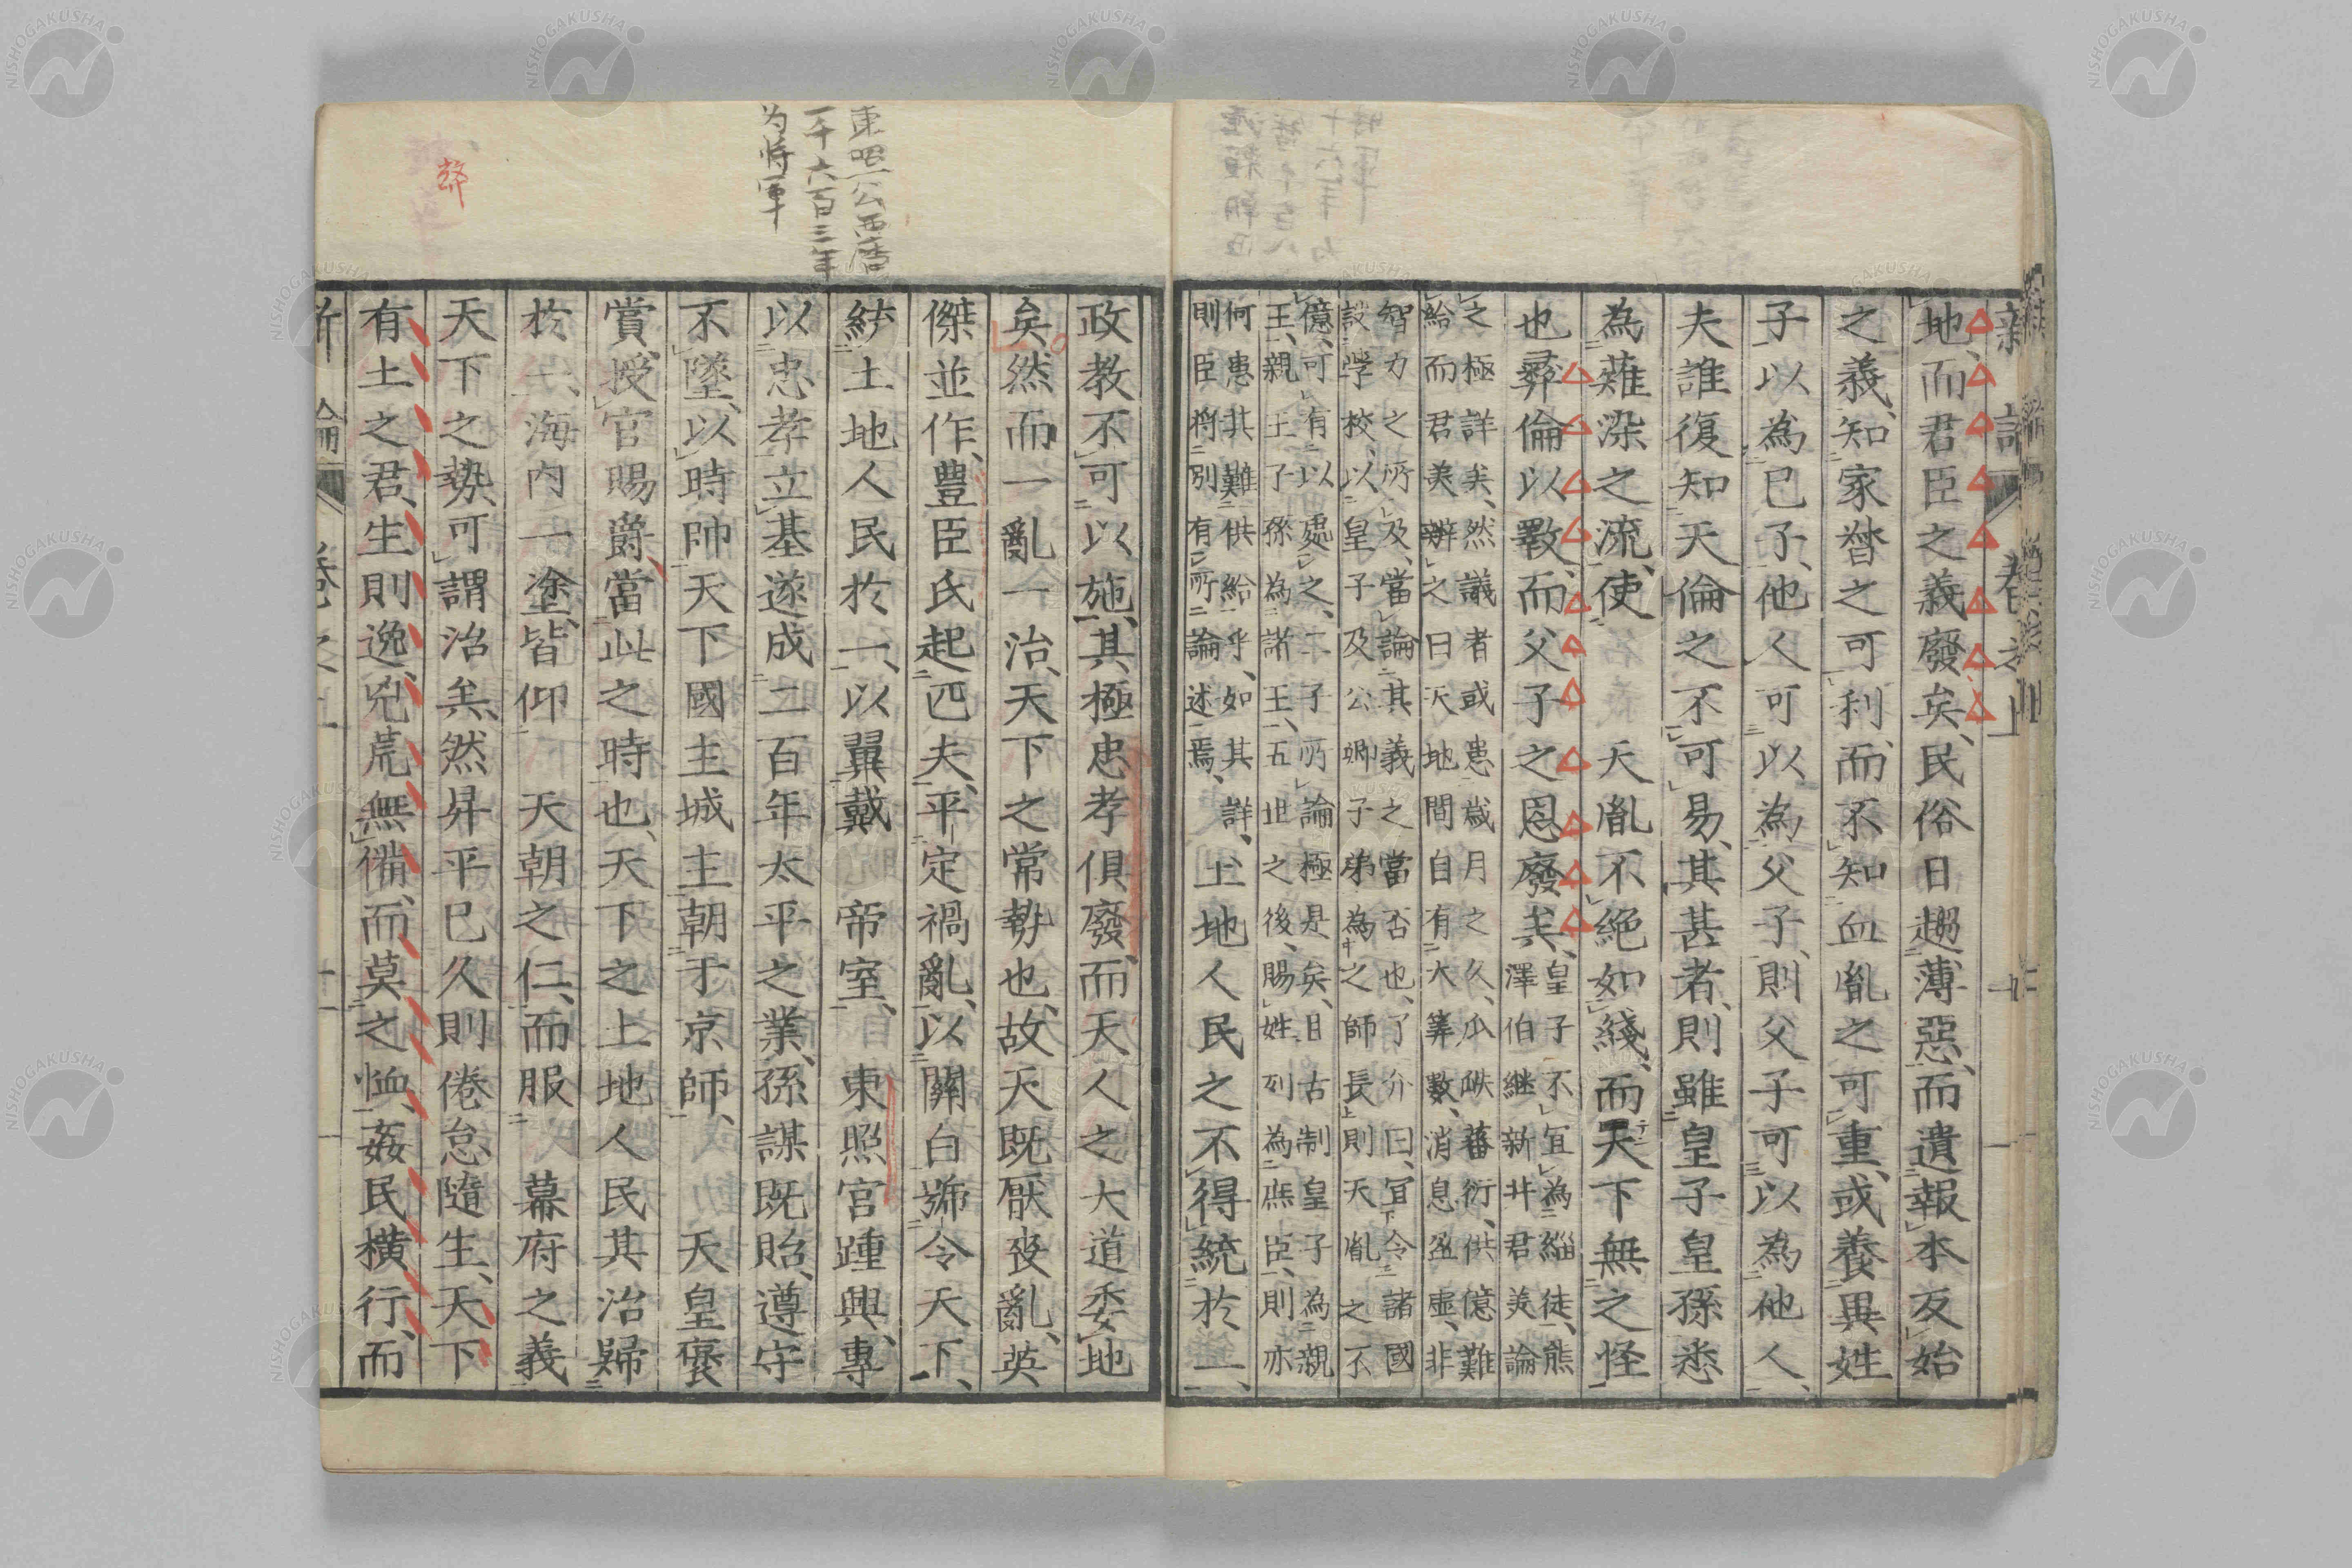 新論 卷之上
地、而君臣之義廢矣、民俗日趨薄惡、而遺報本反始
之義、知家督之可利、而不知血胤之可重、或養異姓
子以為己子、他人可以為父子、則父子可以為他人、
夫誰復知天倫之不可易、其甚者、則雖皇子皇孫悉
為薙染之流、使 天胤不絕如綫、而天下無之怪
也彛倫以斁、而父子之恩廢矣、
皇子不宜為緇徒、熊
澤伯継新井君美論
之極詳矣、然議者或患歲月之久、瓜瓞蕃衍、供億難
給而君美辨之曰天地間自有大筭數、消息盈虛、非
智力之所及、當論其義之當否也、了介曰、宜令諸國
設學校、以皇子及公卿子弟為之師長則天胤之不
億、可有以處之、二子所論極是矣、且古制皇子為親
王、親王子孫為諸王、五世之後、賜姓列為庶臣、則亦
何患其難供給乎、如其詳、
則臣將別有所論述焉、
土地人民之不得統於一、
政教不可以施、其極忠孝俱廢、而天人之大道委地
矣然而一亂一治、天下之常勢也、故天既厭喪亂、英
傑並作、豊臣氏起匹夫、平定禍亂、以關白號令天下、
統土地人民於一、以翼戴 帝室、 東照宮踵興、專
以忠孝立基遂成二百年太平之業、孫謀既貽、遵守
不墜、以時帥天下國主城主朝于京師、 天皇褒
賞、授官賜爵、當此之時也、天下之土地人民其治歸
於一、海內一塗、皆仰 天朝之仁、而服 幕府之義
天下之勢、可謂治矣、然昇平已久則倦怠隨生、天下
有土之君、生則逸、兇荒無備、而莫之恤、姦民橫行、而
東照公西暦
一千六百三年
为将軍
弊
新論 卷之上